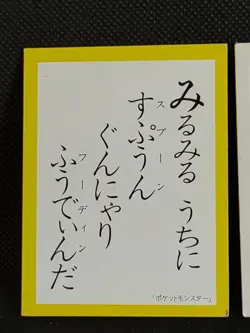 みるみる うちに
すぷうん
スプーン
ぐんにゃり
ふうでぃんだ
フーディン
「ポケットモンスター」